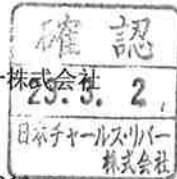 確認
株式会社
23.3.2.
日本チャールス・リバー
株式会社